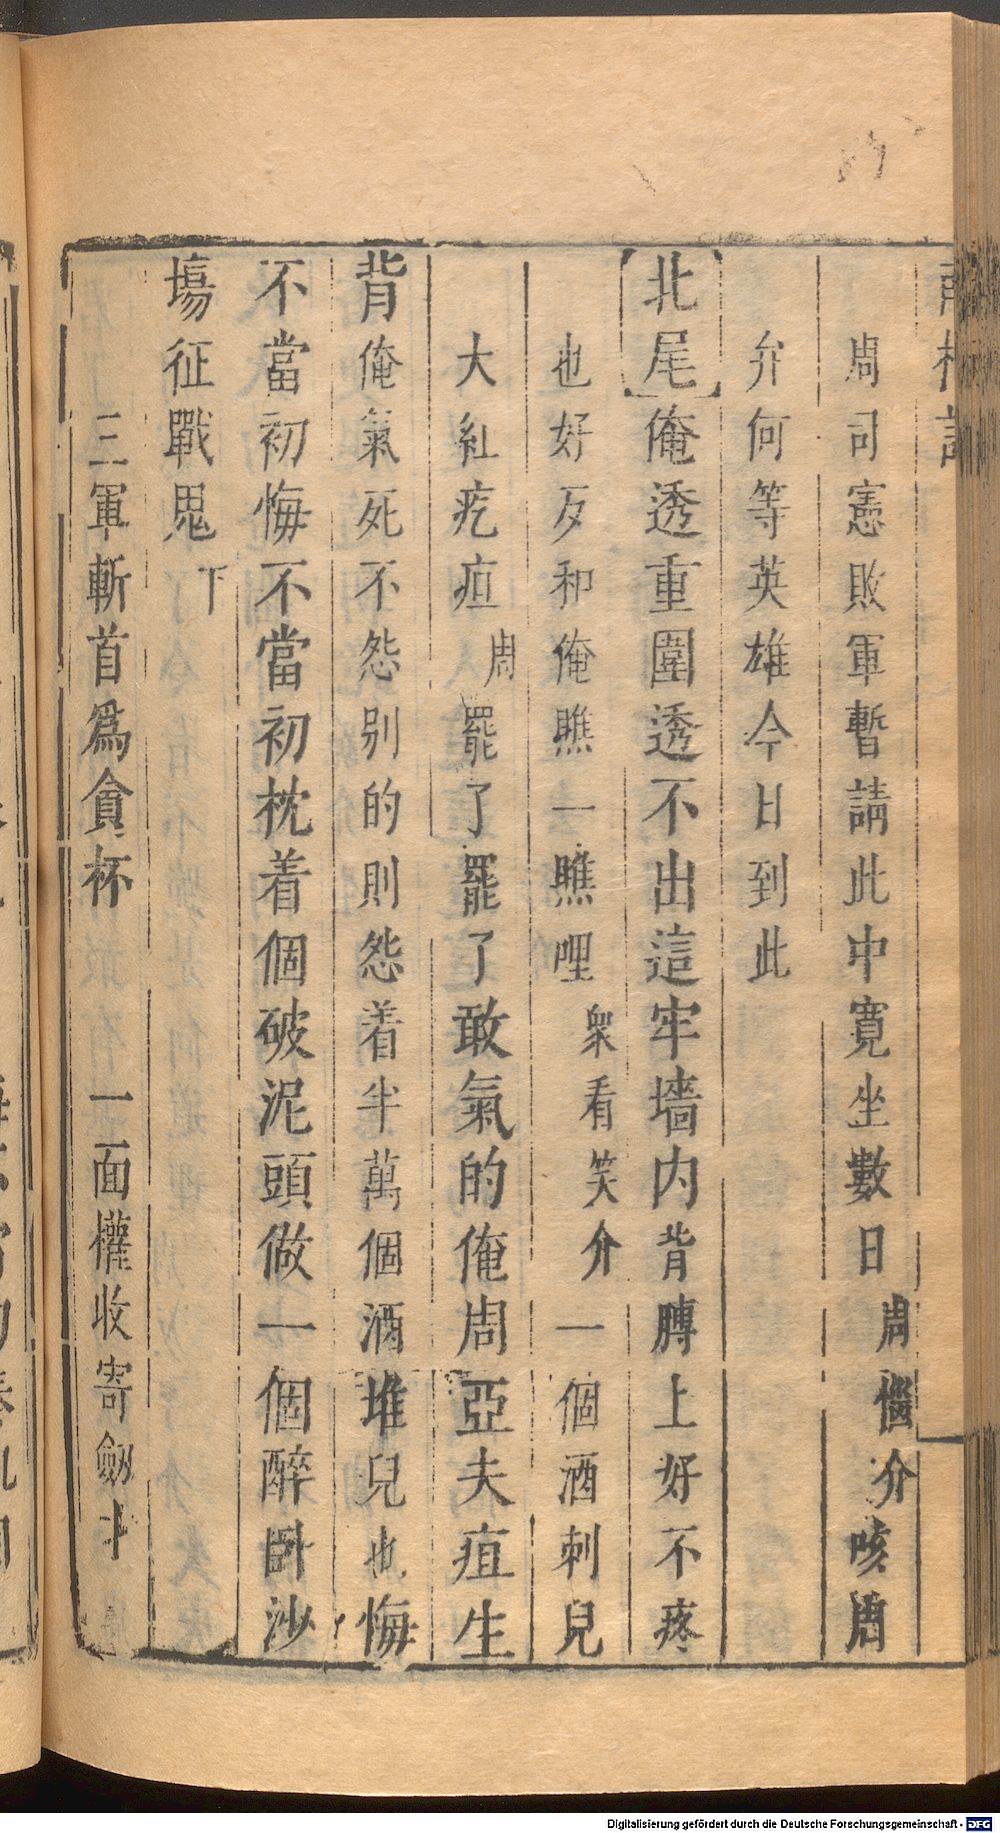 周司憲敗軍暫請此中寬坐數日周惱介咳周
弁何等英雄今日到此
【北尾】俺透重圍透不出這牢墻内背膊上好不疼
也好歹和俺瞧一瞧哩衆看笑介一個酒刺兒
大紅疙疸周罷了罷了敢氣的俺周亞夫疽生
背俺氣死不怨别的則怨着半萬個酒堆兒也悔
不當初悔不當初枕着個破泥頭做一個醉臥沙
塲征戰鬼下
三軍斬首爲貪杯 一面權收寄劔
Digitalisierung gefördert durch die Deutsche Forschungsgemeinschaft - DFG